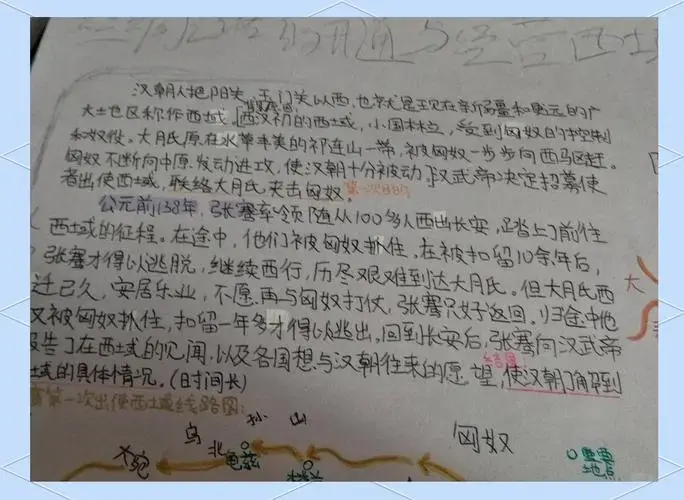 丝绸之路的开通与经营西域
汉朝人把阳关、玉门关以西,也就是现在新疆和更远的广
大土也区称作西域。西汉初的西域,小国林立,受到匈奴的控制
和奴役。大月氏原在水草丰美的祁连山一带,被匈奴一步步向西驱赶。
匈奴不断向中原发动进攻,使汉朝十分被动。汉武帝决定招募使
者出使西域,联络大月氏夹击匈奴。第一次目的
公元前138年,张骞率领随从100多人西出长安,踏上了前往
西域的征程。在途中,他们被匈奴抓住。在被扣留10余年后,
张骞才得以逃脱,继续西行,历尽艰难到达大月氏。但大月氏西
迁已久,安居乐业,不愿再与匈奴打仗,张骞只好返回。归途中他
又被匈奴抓住,扣留一年多才得以逃出。回到长安后,张骞向汉武帝
报告了在西域的见闻,以及各国想与汉朝往来的愿望,使汉朝了解到
结果
土或的具体情况。(时间长)
骞第一次出使西域线路图:
乌 孙 山
北
大宛
龟兹
匈奴
重要
地点
大